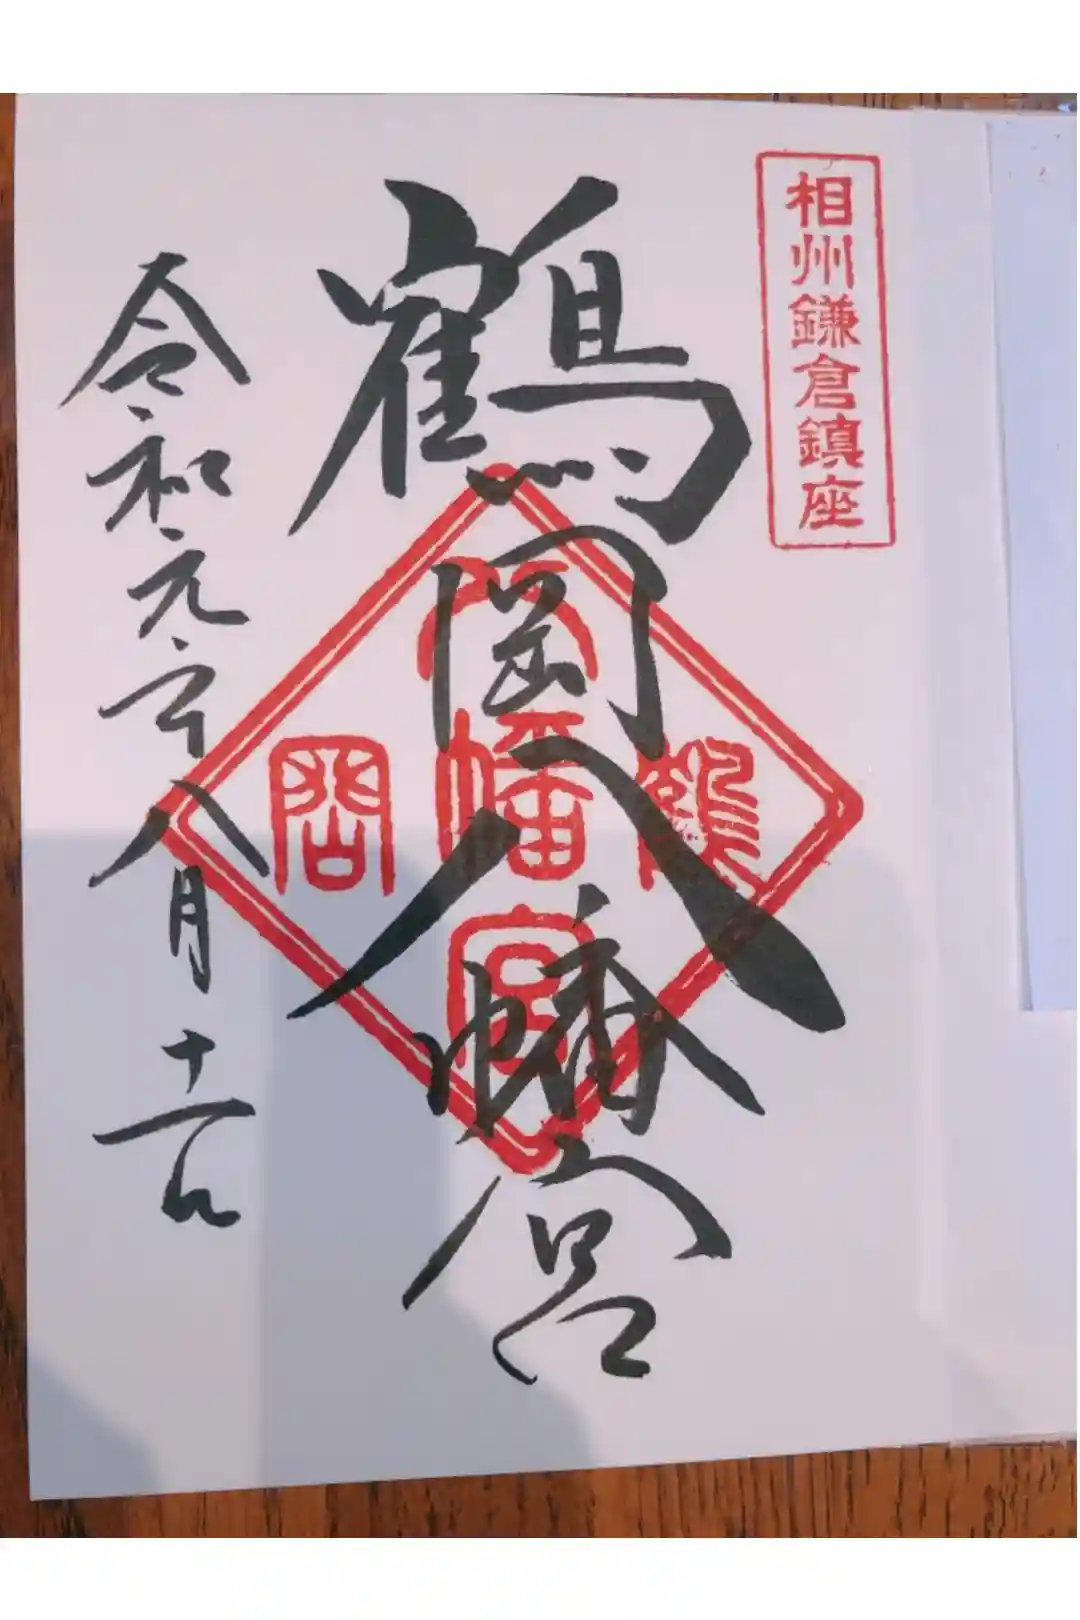 相州鎌倉鎮座
鶴岡八幡宮
鶴
八幡宮
岡
令和元年八月十一日